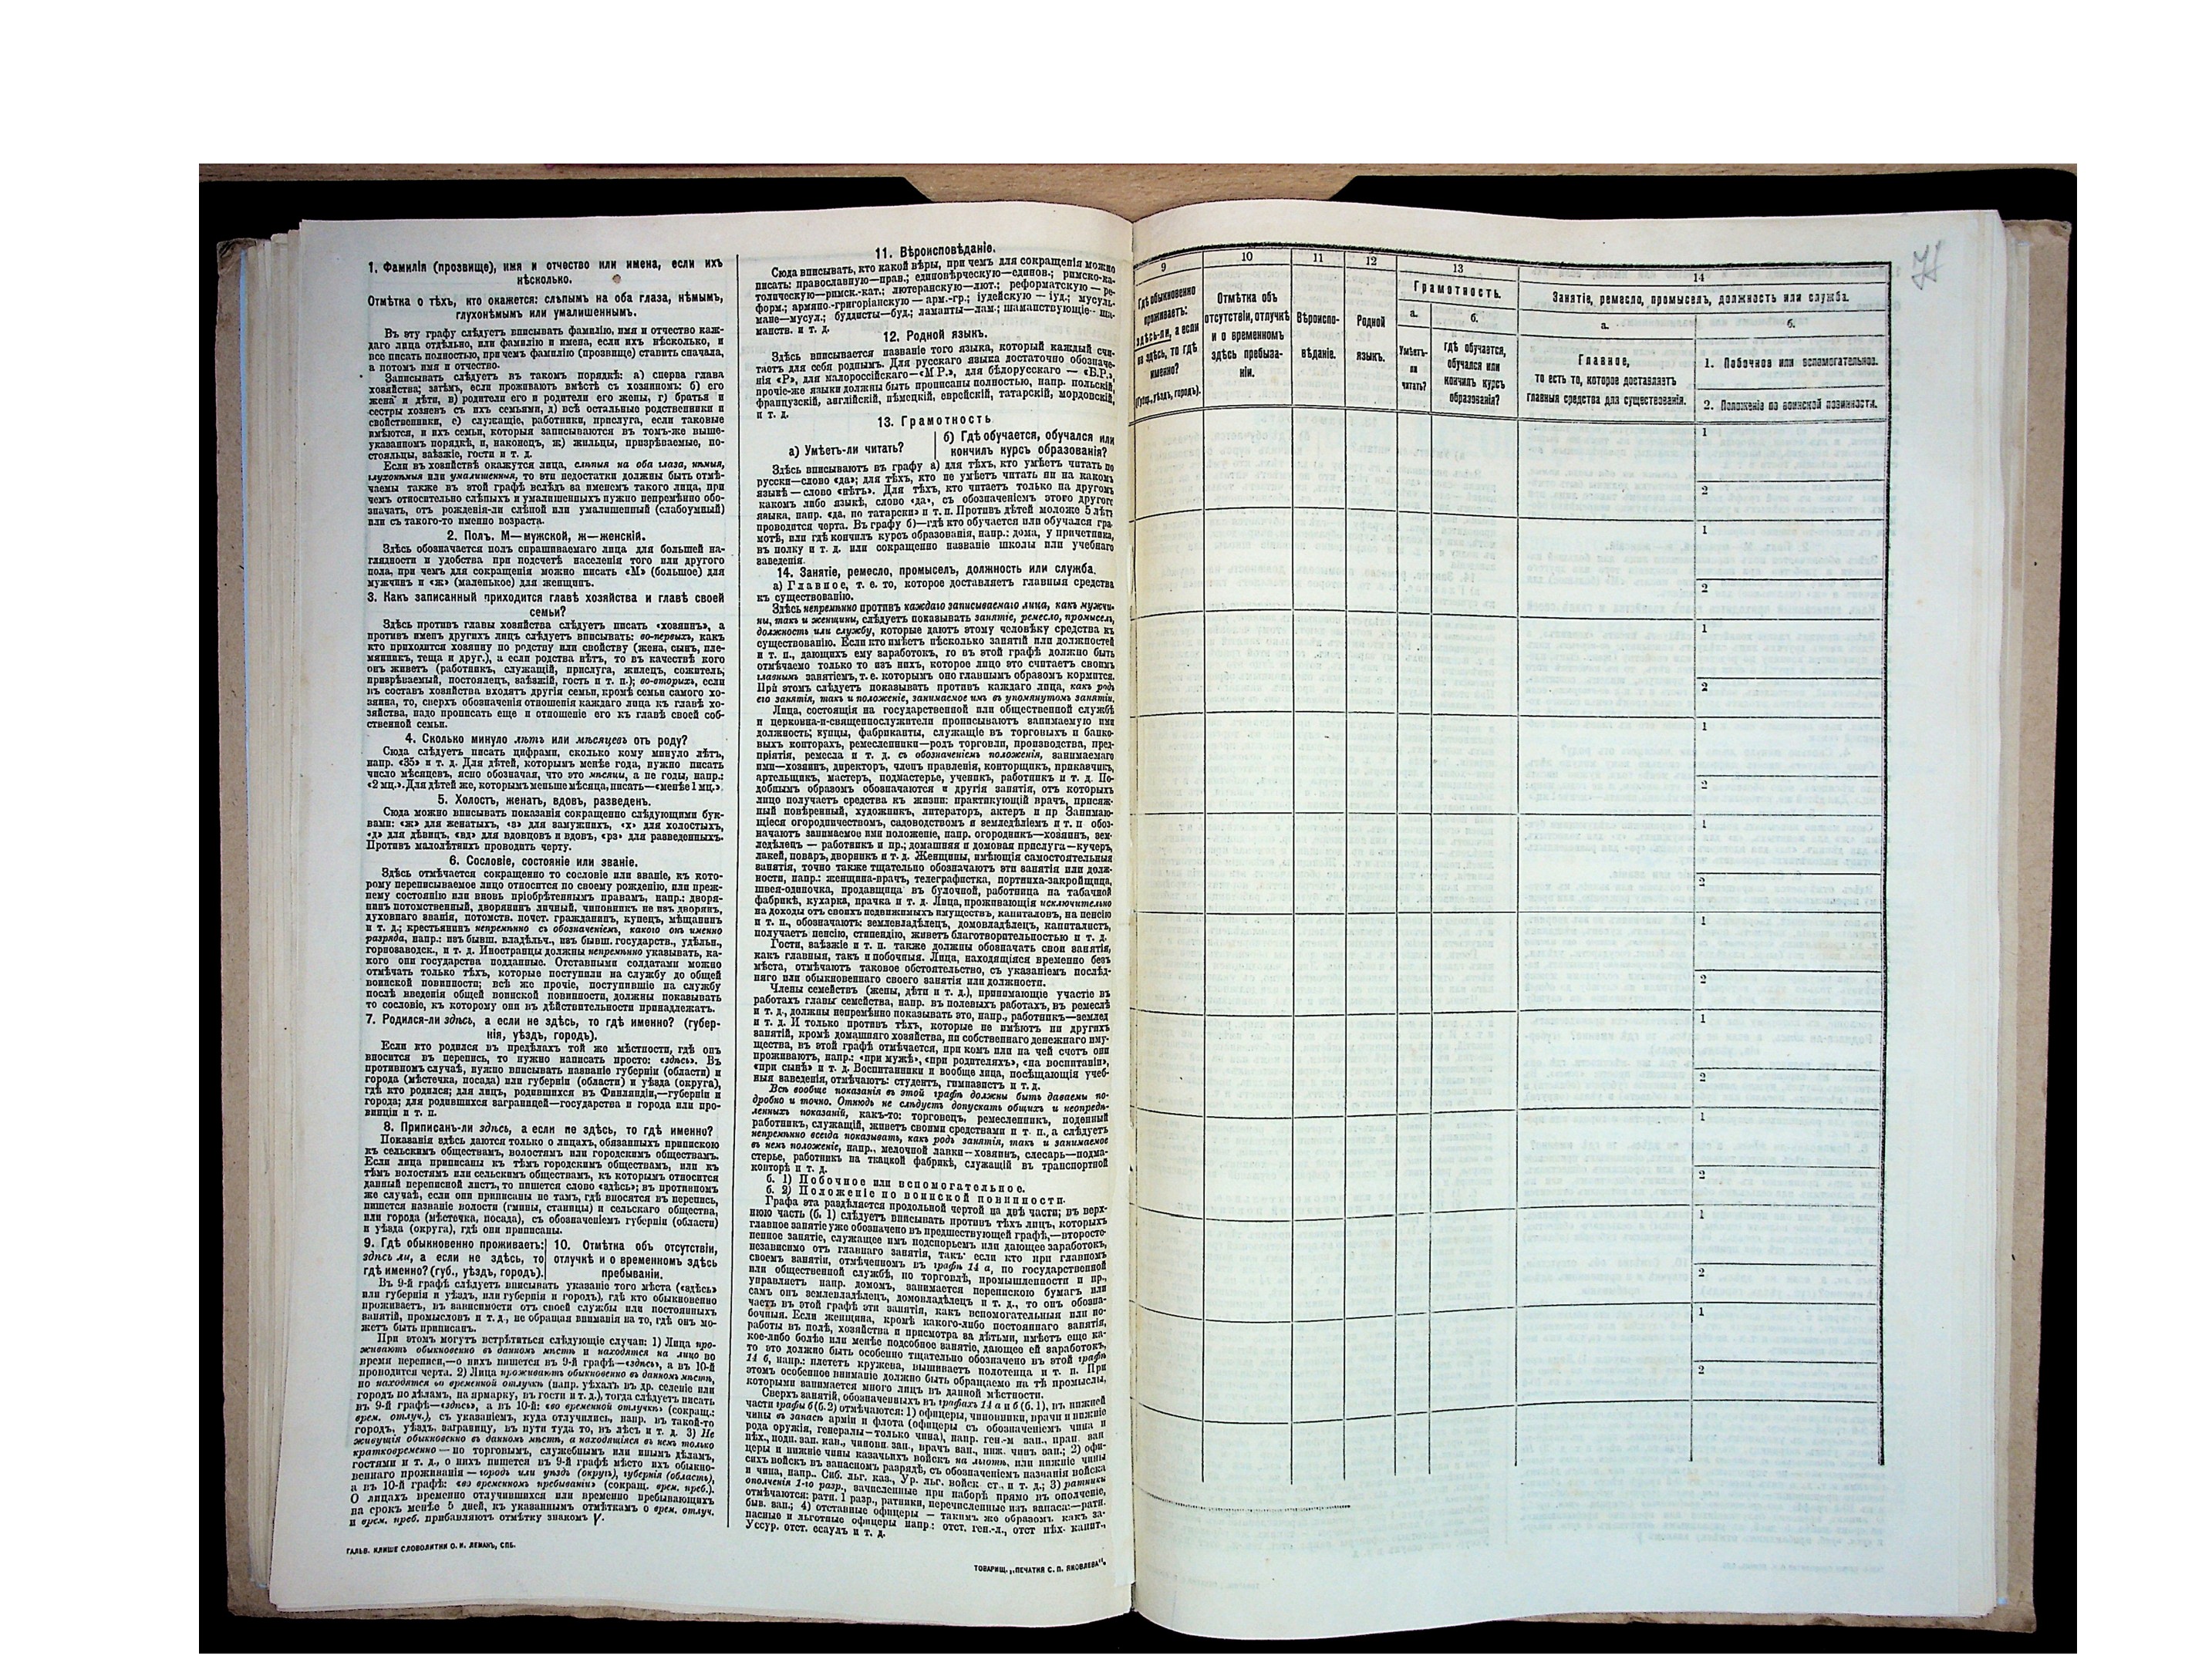 1. Фамилія (прозвище), имя и отчество или имена, если ихъ
нѣсколько.
Отмѣтка о тѣхъ, кто окажется: слѣпымъ на оба глаза, нѣмымъ,
глухонѣмымъ или умалишеннымъ.
Въ эту графу слѣдуетъ вписывать фамилію, имя и отчество каж-
даго лица отдѣльно, или фамилію и имена, если ихъ нѣсколько, и
все писать полностью, при чемъ фамилію (прозвище) ставить сначала,
а потомъ имя и отчество.
Записывать слѣдуетъ въ такомъ порядкѣ: а) сперва глава
хозяйства; затѣмъ, если проживаютъ вмѣстѣ съ хозяиномъ: б) его
жена и дѣти, в) родители его и родители его жены, г) братья и
сестры хозяевъ съ ихъ семьями, д) всѣ остальные родственники и
свойственники, е) служащіе, работники, прислуга, если таковые
имѣются, и ихъ семьи, которыя записываются въ томъ-же выше-
указанномъ порядкѣ, и, наконецъ, ж) жильцы, призрѣваемые, по-
стояльцы, заѣзжіе, гости и т. д.
Если въ хозяйствѣ окажутся лица, слѣпыя на оба глаза, нѣмыя,
глухонѣмыя или умалишенныя, то эти недостатки должны быть отмѣ-
чаемы также въ этой графѣ вслѣдъ за именемъ такого лица, при
чемъ относительно слѣпыхъ и умалишенныхъ нужно непремѣнно обо-
значать, отъ рожденія-ли слѣпой или умалишенный (слабоумный)
или съ такого-то именно возраста.
2. Полъ. М—мужской, ж—женскій.
Здѣсь обозначается полъ спрашиваемаго лица для большей на-
глядности и удобства при подсчетѣ населенія того или другого
пола, при чемъ для сокращенія можно писать «М» (большое) для
мужчинъ и «ж» (маленькое) для женщинъ.
3. Какъ записанный приходится главѣ хозяйства и главѣ своей
семьи?
Здѣсь противъ главы хозяйства слѣдуетъ писать «хозяинъ», а
противъ именъ другихъ лицъ слѣдуетъ вписывать: во-первыхъ, какъ
кто приходится хозяину по родству или свойству (жена, сынъ, пле-
мянникъ, теща и друг.), а если родства нѣтъ, то въ качествѣ кого
онъ живетъ (работникъ, служащій, прислуга, жилецъ, сожитель,
призрѣваемый, постоялецъ, заѣзжій, гость и т. п.); во-вторыхъ, если
въ составъ хозяйства входятъ другія семьи, кромѣ семьи самого хо-
зяина, то, сверхъ обозначенія отношенія каждаго лица къ главѣ хо-
зяйства, надо прописать еще и отношеніе его къ главѣ своей соб-
ственной семьи.
4. Сколько минуло лѣтъ или мѣсяцевъ отъ роду?
Сюда слѣдуетъ писать цифрами, сколько кому минуло лѣтъ,
напр. «35» и т. д. Для дѣтей, которымъ менѣе года, нужно писать
число мѣсяцевъ, ясно обозначая, что это мѣсяцы, а не годы, напр.:
«2 мц.». Для дѣтей же, которымъ меньше мѣсяца, писать—«менѣе 1 мц.».
5. Холостъ, женатъ, вдовъ, разведенъ.
Сюда можно вписывать показанія сокращенно слѣдующими бук-
вами: «ж» для женатыхъ, «з» для замужнихъ, «х» для холостыхъ,
«д» для дѣвицъ, «вд» для вдовцовъ и вдовъ, «рз» для разведенныхъ.
Противъ малолѣтнихъ проводить черту.
6. Сословіе, состояніе или званіе.
Здѣсь отмѣчается сокращенно то сословіе или званіе, къ кото-
рому переписываемое лицо относится по своему рожденію, или преж-
нему состоянію или вновь пріобрѣтеннымъ правамъ, напр.: дворя-
нинъ потомственный, дворянинъ личный, чиновникъ не изъ дворянъ,
духовнаго званія, потомств. почет. гражданинъ, купецъ, мѣщанинъ
и т. д.; крестьянинъ непремѣнно съ обозначеніемъ, какого онъ именно
разряда, напр.: изъ бывш. владѣльч., изъ бывш. государств., удѣльн.,
горнозаводск., и т. д. Иностранцы должны непремѣнно указывать, ка-
кого они государства подданные. Отставными солдатами можно
отмѣчать только тѣхъ, которые поступили на службу до общей
воинской повинности; всѣ же прочіе, поступившіе на службу
послѣ введенія общей воинской повинности, должны показывать
то сословіе, къ которому они въ дѣйствительности принадлежатъ.
7. Родился-ли здѣсь, а если не здѣсь, то гдѣ именно? (губер-
нія, уѣздъ, городъ).
Если кто родился въ предѣлахъ той же мѣстности, гдѣ онъ
вносится въ перепись, то нужно написать просто: «здѣсь». Въ
противномъ случаѣ, нужно вписывать названіе губерніи (области) и
города (мѣстечка, посада) или губерніи (области) и уѣзда (округа),
гдѣ кто родился; для лицъ, родившихся въ Финляндіи,—губерніи и
города; для родившихся заграницей—государства и города или про-
винціи и т. п.
8. Приписанъ-ли здѣсь, а если не здѣсь, то гдѣ именно?
Показанія здѣсь даются только о лицахъ, обязанныхъ припискою
къ сельскимъ обществамъ, волостямъ или городскимъ обществамъ.
Если лица приписаны къ тѣмъ городскимъ обществамъ, или къ
тѣмъ волостямъ или сельскимъ обществамъ, къ которымъ относится
данный переписной листъ, то пишется слово «здѣсь»; въ противномъ
же случаѣ, если они приписаны не тамъ, гдѣ вносятся въ перепись,
пишется названіе волости (гмины, станицы) и сельскаго общества,
или города (мѣстечка, посада), съ обозначеніемъ губерніи (области)
и уѣзда (округа), гдѣ они приписаны.
9. Гдѣ обыкновенно проживаетъ:
здѣсь ли, а если не здѣсь, то
гдѣ именно? (губ., уѣздъ, городъ).
10. Отмѣтка объ отсутствіи,
отлучкѣ и о временномъ здѣсь
пребываніи.
Въ 9-й графѣ слѣдуетъ вписывать указаніе того мѣста («здѣсь»
или губернія и уѣздъ, или губернія и городъ), гдѣ кто обыкновенно
проживаетъ, въ зависимости отъ своей службы или постоянныхъ
занятій, промысловъ и т. д., не обращая вниманія на то, гдѣ онъ мо-
жетъ быть приписанъ.
При этомъ могутъ встрѣтиться слѣдующіе случаи: 1) Лица про-
живаютъ обыкновенно въ данномъ мѣстѣ и находятся на лицо во
время переписи,—о нихъ пишется въ 9-й графѣ—«здѣсь», а въ 10-й
проводится черта. 2) Лица проживаютъ обыкновенно въ данномъ мѣстѣ,
но находятся во временной отлучкѣ (напр. уѣхалъ въ др. селеніе или
городъ по дѣламъ, на ярмарку, въ гости и т. д.), тогда слѣдуетъ писать
въ 9-й графѣ—«здѣсь», а въ 10-й: «во временной отлучкѣ» (сокращ.:
врем. отлуч.), съ указаніемъ, куда отлучились, напр. въ такой-то
городъ, уѣздъ, заграницу, въ пути туда то, въ лѣсъ и т. д. 3) Не
живущія обыкновенно въ данномъ мѣстѣ, а находящіяся въ немъ только
кратковременно—по торговымъ, служебнымъ или инымъ дѣламъ,
гостями и т. д., о нихъ пишется въ 9-й графѣ мѣсто ихъ обыкно-
веннаго проживанія—городъ или уѣздъ (округъ), губернія (область),
а въ 10-й графѣ: «во временномъ пребываніи» (сокращ. врем. преб.).
О лицахъ временно отлучившихся или временно пребывающихъ
на срокъ менѣе 5 дней, къ указаннымъ отмѣткамъ о врем. отлуч.
и врем. преб. прибавляютъ отмѣтку знакомъ V.
ГАЛЬВ. КЛИШЕ СЛОВОЛИТНИ О. И. ЛЕМАНЪ, СПБ.
11. Вѣроисповѣданіе.
Сюда вписывать, кто какой вѣры, при чемъ для сокращенія можно
писать: православную—прав.; единовѣрческую—единов.; римско-ка-
толическую—римск.-кат.; лютеранскую—лют.; реформатскую—ре-
форм.; армяно-григоріанскую—арм.-гр.; іудейскую—іуд.; мусуль-
мане—мусул.; буддисты—буд.; ламаиты—лам.; шаманствующіе—ша-
манств. и т. д.
12. Родной языкъ.
Здѣсь вписывается названіе того языка, который каждый счи-
таетъ для себя роднымъ. Для русскаго языка достаточно обозначе-
нія «Р», для малороссійскаго—«М.Р.», для бѣлорусскаго—«Б.Р.»,
прочіе-же языки должны быть прописаны полностью, напр. польскій,
французскій, англійскій, нѣмецкій, еврейскій, татарскій, мордовскій,
и т. д.
13. Грамотность
а) Умѣетъ-ли читать?
б) Гдѣ обучается, обучался или
кончилъ курсъ образованія?
Здѣсь вписываютъ въ графу а) для тѣхъ, кто умѣетъ читать по
русски—слово «да»; для тѣхъ, кто не умѣетъ читать ни на какомъ
языкѣ—слово «нѣтъ». Для тѣхъ, кто читаетъ только на другомъ
какомъ либо языкѣ, слово «да», съ обозначеніемъ этого другого
языка, напр. «да, по татарски» и т. п. Противъ дѣтей моложе 5 лѣтъ
проводится черта. Въ графу б)—гдѣ кто обучается или обучался гра-
мотѣ, или гдѣ кончилъ курсъ образованія, напр.: дома, у причетника,
въ полку и т. д. или сокращенно названіе школы или учебнаго
заведенія.
14. Занятіе, ремесло, промыселъ, должность или служба.
а) Главное, т. е. то, которое доставляетъ главныя средства
къ существованію.
Здѣсь непремѣнно противъ каждаго записываемаго лица, какъ мужчи-
ны, такъ и женщины, слѣдуетъ показывать занятіе, ремесло, промыселъ,
должность или службу, которые даютъ этому человѣку средства къ
существованію. Если кто имѣетъ нѣсколько занятій или должностей
и т. п., дающихъ ему заработокъ, то въ этой графѣ должно быть
отмѣчаемо только то изъ нихъ, которое лицо это считаетъ своимъ
главнымъ занятіемъ, т. е. которымъ оно главнымъ образомъ кормится.
При этомъ слѣдуетъ показывать противъ каждаго лица, какъ родъ
его занятія, такъ и положеніе, занимаемое имъ въ упомянутомъ занятіи.
Лица, состоящія на государственной или общественной службѣ
и церковно-и-священнослужители прописываютъ занимаемую ими
должность; купцы, фабриканты, служащіе въ торговыхъ и банко-
выхъ конторахъ, ремесленники—родъ торговли, производства, пред-
пріятія, ремесла и т. д. съ обозначеніемъ положенія, занимаемаго
ими—хозяинъ, директоръ, членъ правленія, конторщикъ, прикащикъ,
артельщикъ, мастеръ, подмастерье, ученикъ, работникъ и т. д. По-
добнымъ образомъ обозначаются и другія занятія, отъ которыхъ
лицо получаетъ средства къ жизни: практикующій врачъ, присяж-
ный повѣренный, художникъ, литераторъ, актеръ и пр Занимаю-
щіеся огородничествомъ, садоводствомъ и земледѣліемъ и т. п. обоз-
начаютъ занимаемое ими положеніе, напр. огородникъ—хозяинъ, зем-
ледѣлецъ—работникъ и пр.; домашняя и домовая прислуга—кучеръ,
лакей, поваръ, дворникъ и т. д. Женщины, имѣющія самостоятельныя
занятія, точно также тщательно обозначаютъ эти занятія или долж-
ности, напр.: женщина-врачъ, телеграфистка, портниха-закройщица,
швея-одиночка, продавщица въ булочной, работница на табачной
фабрикѣ, кухарка, прачка и т. д. Лица, проживающія исключительно
на доходы отъ своихъ недвижимыхъ имуществъ, капиталовъ, на пенсію
и т. п., обозначаютъ: землевладѣлецъ, домовладѣлецъ, капиталистъ,
получаетъ пенсію, стипендію, живетъ благотворительностью и т. д.
Гости, заѣзжіе и т. п. также должны обозначать свои занятія,
какъ главныя, такъ и побочныя. Лица, находящіяся временно безъ
мѣста, отмѣчаютъ таковое обстоятельство, съ указаніемъ послѣд-
няго или обыкновеннаго своего занятія или должности.
Члены семействъ (жены, дѣти и т. д.), принимающіе участіе въ
работахъ главы семейства, напр. въ полевыхъ работахъ, въ ремеслѣ
и т. д., должны непремѣнно показывать это, напр., работникъ—землед
и т. д. И только противъ тѣхъ, которые не имѣютъ ни другихъ
занятій, кромѣ домашняго хозяйства, ни собственнаго денежнаго иму-
щества, въ этой графѣ отмѣчается, при комъ или на чей счетъ они
проживаютъ, напр.: «при мужѣ», «при родителяхъ», «на воспитаніи»,
«при сынѣ» и т. д. Воспитанники и вообще лица, посѣщающія учеб-
ныя заведенія, отмѣчаютъ: студентъ, гимназистъ и т. д.
Всѣ вообще показанія въ этой графѣ должны быть даваемы по-
дробно и точно. Отнюдь не слѣдуетъ допускать общихъ и неопредѣ-
ленныхъ показаній, какъ-то: торговецъ, ремесленникъ, поденный
работникъ, служащій, живетъ своими средствами и т. п., а слѣдуетъ
непремѣнно всегда показывать, какъ родъ занятія, такъ и занимаемое
въ немъ положеніе, напр., мелочной лавки—хозяинъ, слесарь—подма-
стерье, работникъ на ткацкой фабрикѣ, служащій въ транспортной
конторѣ и т. д.
б. 1) Побочное или вспомогательное.
б. 2) Положеніе по воинской повинности.
Графа эта раздѣляется продольной чертой на двѣ части; въ верх-
нюю часть (б. 1) слѣдуетъ вписывать противъ тѣхъ лицъ, которыхъ
главное занятіе уже обозначено въ предшествующей графѣ,—второсте-
пенное занятіе, служащее имъ подспорьемъ или дающее заработокъ,
независимо отъ главнаго занятія, такъ: если кто при главномъ
своемъ занятіи, отмѣченномъ въ графѣ 14 а, по государственной
или общественной службѣ, по торговлѣ, промышленности и пр.,
управляетъ напр. домомъ, занимается перепискою бумагъ или
самъ онъ землевладѣлецъ, домовладѣлецъ и т. д., то онъ обозна-
чаетъ въ этой графѣ эти занятія, какъ вспомогательныя или по-
бочныя. Если женщина, кромѣ какого-либо постояннаго занятія,
работы въ полѣ, хозяйства и присмотра за дѣтьми, имѣетъ еще ка-
кое-либо болѣе или менѣе подсобное занятіе, дающее ей заработокъ,
то это должно быть особенно тщательно обозначено въ этой графѣ
14 б, напр.: плететъ кружева, вышиваетъ полотенца и т. п. При
этомъ особенное вниманіе должно быть обращаемо на тѣ промыслы,
которыми занимается много лицъ въ данной мѣстности.
Сверхъ занятій, обозначенныхъ въ графахъ 14 а и б (б. 1), въ нижней
части графы б (б.2) отмѣчаются: 1) офицеры, чиновники, врачи и нижніе
чины въ запасѣ арміи и флота (офицеры съ обозначеніемъ чина и
рода оружія, генералы—только чина), напр. ген.-м зап., прап. зап
пѣх., подп. зап. кав., чиновн. зап., врачъ зап., ниж. чинъ зап.; 2) офи-
церы и нижніе чины казачьихъ войскъ на льготѣ, или нижніе чины
сихъ войскъ въ запасномъ разрядѣ, съ обозначеніемъ названія войска
и чина, напр., Сиб. льг. каз., Ур. льг. войск. ст., и т. д.; 3) ратники
ополченія 1-го разр., зачисленные при наборѣ прямо въ ополченіе,
отмѣчаются: ратн. 1 разр., ратники, перечисленные изъ запаса:—ратн.
быв. зап.; 4) отставные офицеры—такимъ же образомъ какъ за-
пасные и льготные офицеры напр.: отст. ген.-л., отст пѣх. капит.,
Уссур. отст. есаулъ и т. д.
ТОВАРИЩ. „ПЕЧАТНЯ С. П. ЯКОВЛЕВА“.
9
10
11
12
13
14
Гдѣ обыкновенно
проживаетъ:
здѣсь-ли, а если
не здѣсь, то гдѣ
именно?
(Губер., уѣздъ, городъ).
Отмѣтка объ
отсутствіи, отлучкѣ
и о временномъ
здѣсь пребыва-
ніи.
Вѣроиспо-
вѣданіе.
Родной
языкъ.
Грамотность.
а.
Умѣетъ-
ли
читать?
б.
гдѣ обучается,
обучался или
кончилъ курсъ
образованія?
Занятіе, ремесло, промыселъ, должность или служба.
а.
Главное,
то есть то, которое доставляетъ
главныя средства для существованія.
б.
1. Побочное или вспомогательное.
2. Положеніе по воинской повинности.
1
2
1
2
1
2
1
2
1
2
1
2
1
2
1
2
1
2
1
2